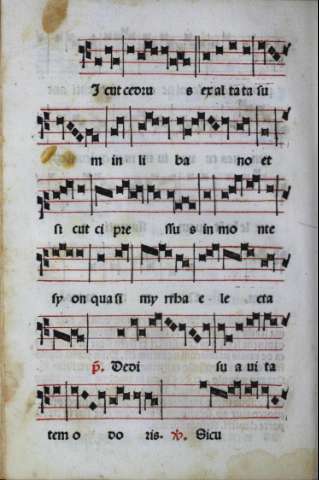 I cut cedru s ex al ta ta su
m in li ba no et
si cut ci pre ssu s in mo nte
sy on qua si my rrha e le cta
℟. Dedi su a ui ta
tem o do ris. ℣. Sicu